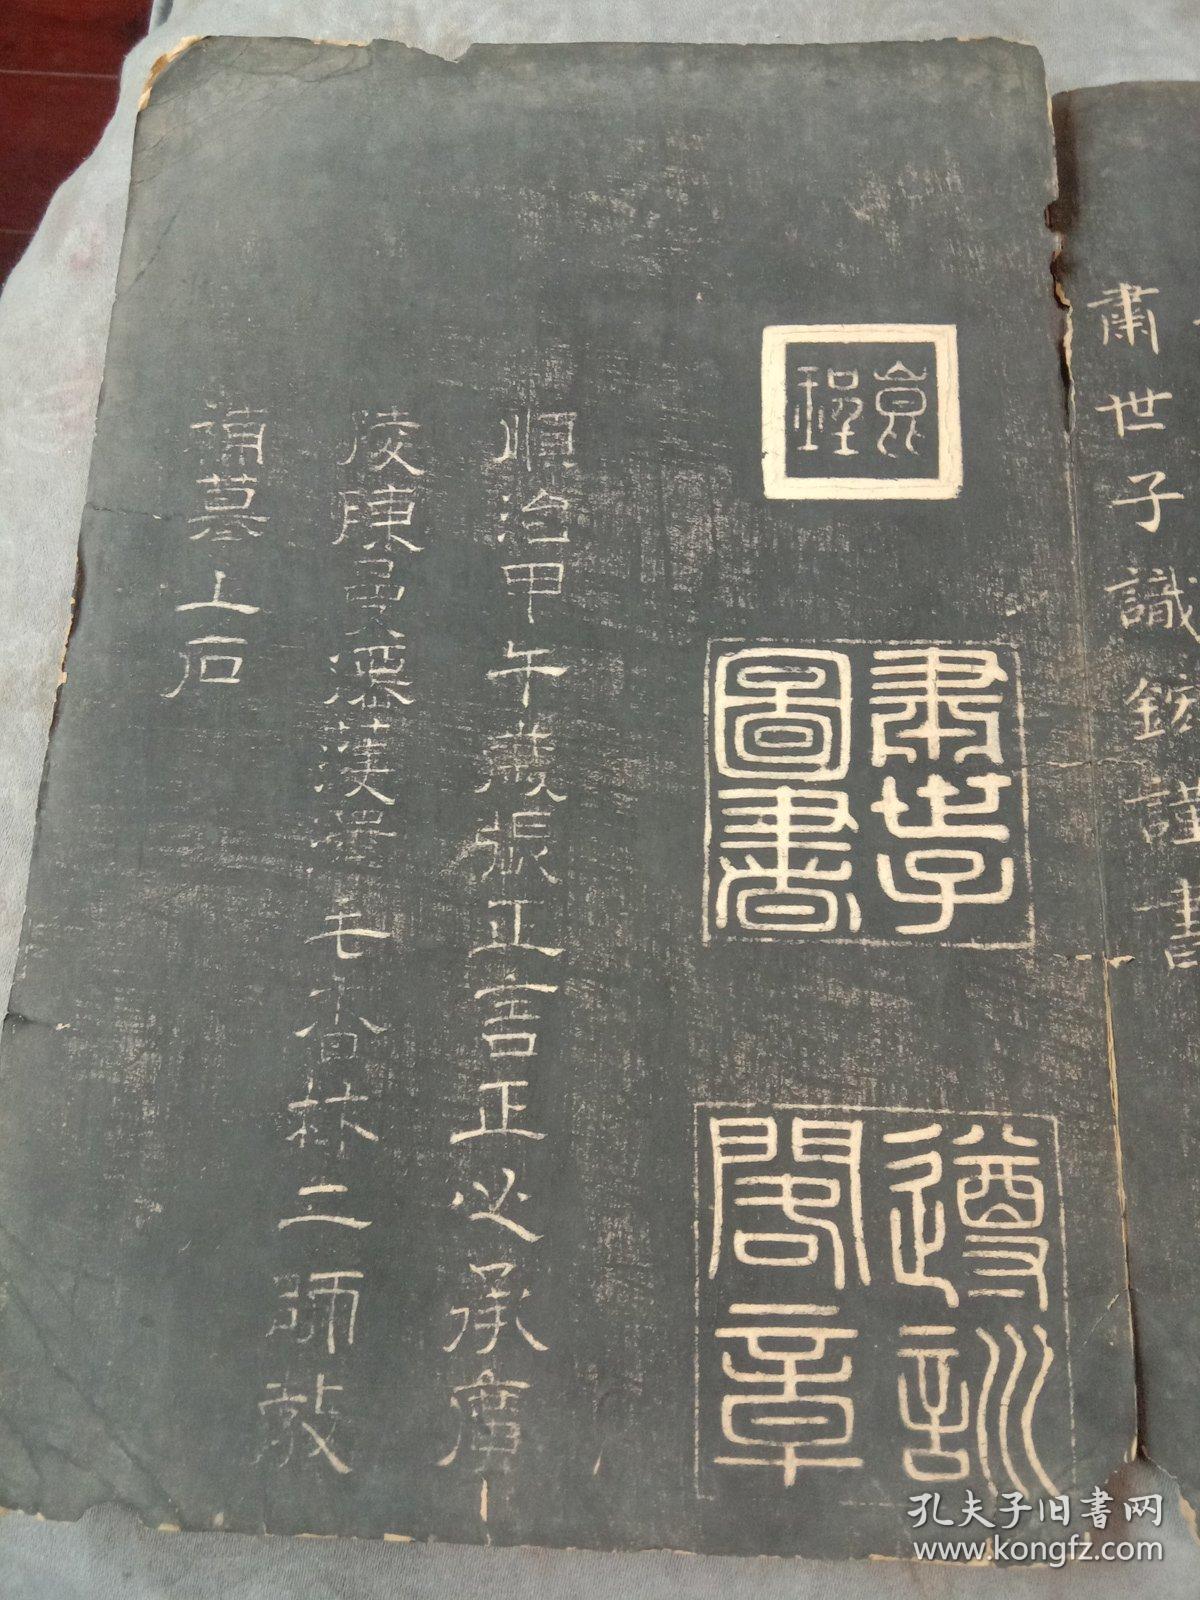 肅世子識鋐謹書
肅世子
圖書
遵訓
閣章
順治甲午歲張正言正心承廣
陵陳 毛香林二師教
補摹上石
孔夫子旧书网
www.kongfz.com